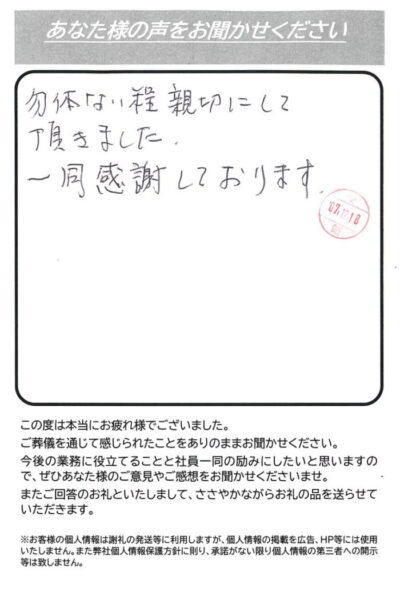 あなた様の声をお聞かせください
勿体ない程親切にして
頂きました.
一同感謝しております.
この度は本当にお疲れ様でございました。
ご葬儀を通じて感じられたことをありのままお聞かせください。
今後の業務に役立てることと社員一同の励みにしたいと思いますの
で、ぜひあなた様のご意見やご感想をお聞かせくださいませ。
またご回答のお礼といたしまして、ささやかながらお礼の品を送らせて
いただきます。
※お客様の個人情報は謝礼の発送等に利用しますが、個人情報の掲載を広告、HP等には使用
いたしません。また弊社個人情報保護方針に則り、承諾がない限り個人情報の第三者への開示
等は致しません。